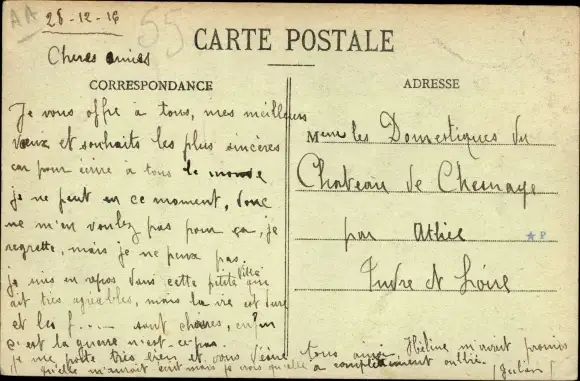 28-12-16
55
CARTE POSTALE
Cheres amies
CORRESPONDANCE
Je vous offre à tous, mes meilleurs
vœux et souhaits les plus sincères
car pour écrire à tous le monde
je ne peut en ce moment, donc
ne m'en voulez pas pour ça, je
regrette, mais je ne peux pas.
je suis en repos dans cette petite ville que
ait très agréables, mais la vie est dure
et les f.... sont chères, enfin
c'est la guerre n'est-ce-pas.
je me porte très bien et vous tous aussi Hélène m'avait promis
qu'elle m'aurait écrit mais je vois qu'elle a complètement oublié.
Julien
ADRESSE
Mesm les Domestiques du
Chateau de Chesnaye
par Athée
Indre et Loire